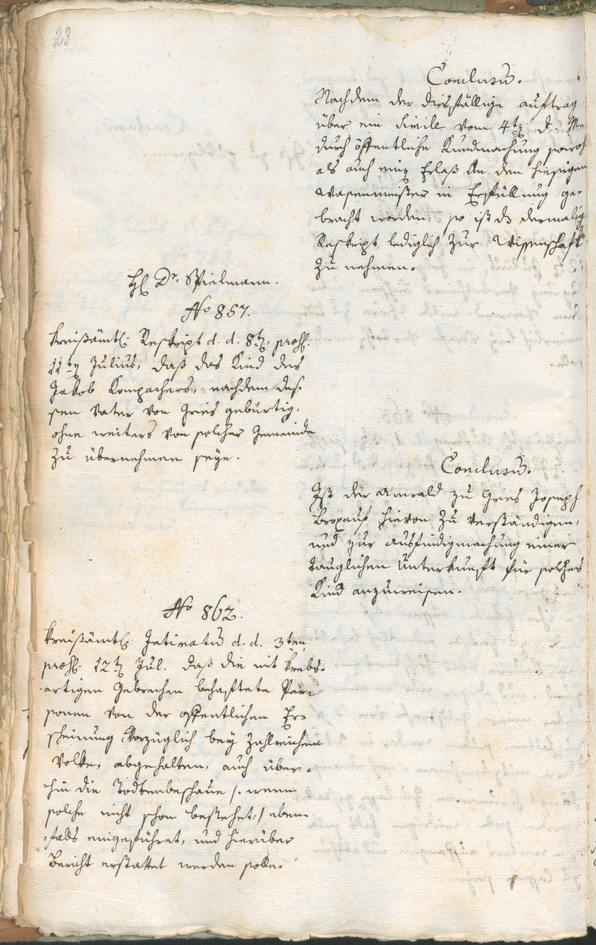 23
Conclusum.
Nachdem der diesfällige auftrag
über ein Simile vom 4t d:
durch öffentliche Kundmachung sowohl
als auch mit Erlaß an den hiesigen
Wasenmeister in Erfüllung ge-
bracht worden, so ist das dermalige
Reskript lediglich zur Wissenschaft
zu nehmen.
H Dr. Spielmann.
No 857.
Kreisämtl: Reskript d. d. 8t, praes:
11ten Julius, daß das Kind des
Jakob Kompachers, nachdem des-
sen Vater von Gries gebürtig,
ohne weiters von solcher Gemeinde
zu übernehmen seye.
Conclusum.
Ist der Anwald zu Gries Joseph
hievon zu verständigen,
und zur ausfindigmachung einer
tauglichen Unterkunft für solches
Kind anzuweisen.
No 862.
Kreisämtl: Intimatum d. d. 3ten
praes: 12t Jul. daß die mit Krebs-
artigen Gebrechen behaftete Per-
sonen von der offentlichen Er-
scheinung vorzüglich bey zahlreichem
Volke, abgehalten, auch über-
hin die Todtenbeschaue /: wenn
solche nicht schon bestehet :/ eben-
falls eingeführet, und hierüber
Bericht erstattet werden solle.